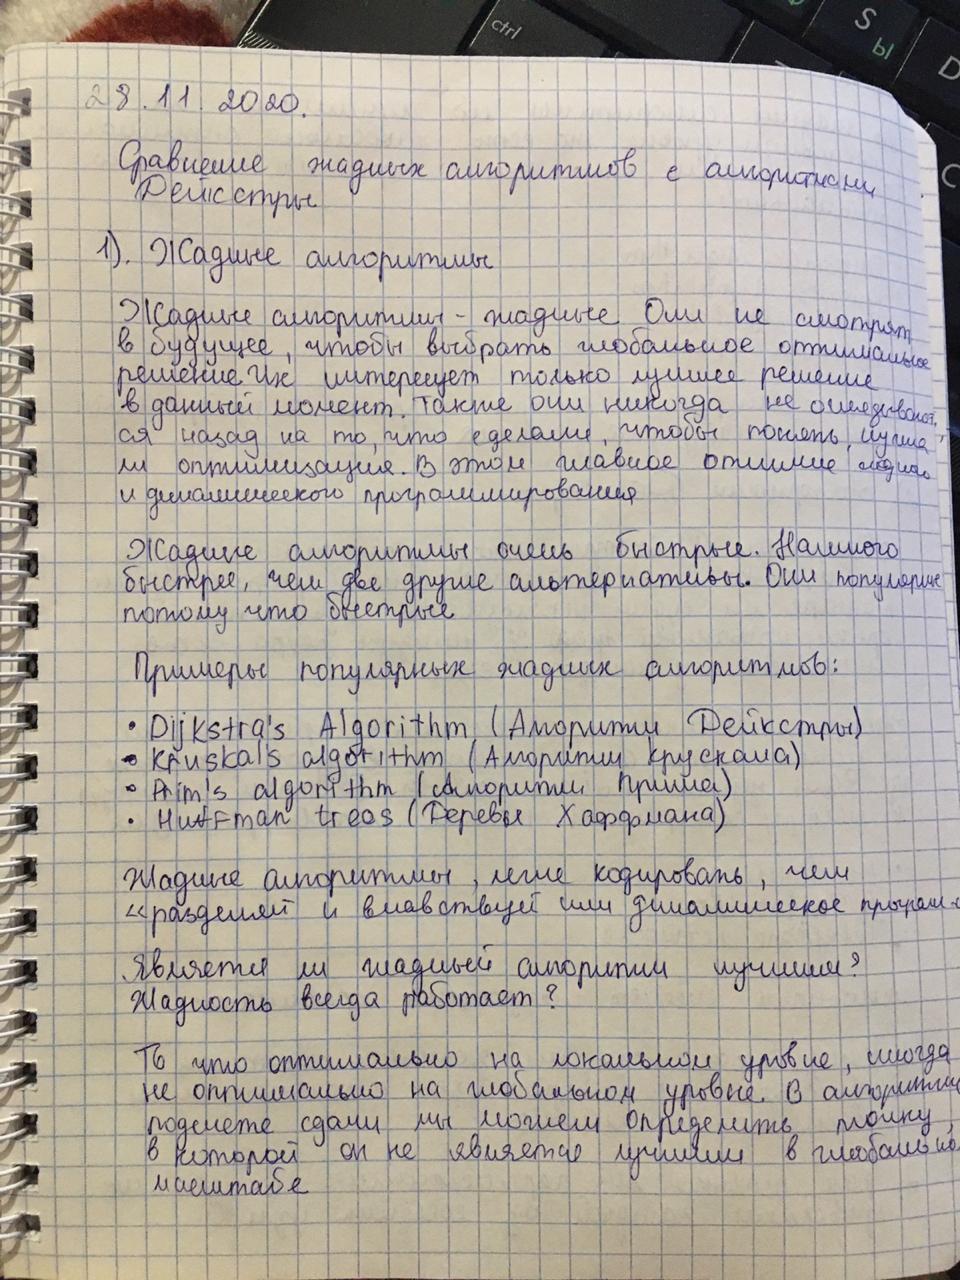 28.11.2020.
Сравнение жадных алгоритмов с алгоритмами
Дейкстры
1). Жадные алгоритмы
Жадные алгоритмы - жадные Они не смотрят
в будущее, чтобы выбрать глобальное оптимальное
решение. Их интересует только лучшее решение
в данный момент. Также они никогда не оглядывают
ся назад на то, что сделали, чтобы понять, лучша
ли оптимизация. В этом главное отличие
и динамического программирования
Жадные алгоритмы очень быстрые. Намного
быстрее, чем две другие альтернативы. Они популярные
потому что быстрые
Примеры популярных жадных алгоритмов:
• Dijkstra's Algorithm (Алгоритм Дейкстры)
• Kruskal's algorithm (Алгоритм Крускала)
• Prim's algorithm (Алгоритм Прима)
• Huffman trees (Деревы Хаффмана)
Жадные алгоритмы, легче кодировать, чем
«разделяй и влавствуей или динамическое програм-
Является ли жадный алгоритм лучшим?
Жадность всегда работает?
То что оптимально на локальном уровне, иногда
не оптимально на глобальном уровне. В алгоритме
подсчете сдачи мы можем определить точку,
в которой он не является лучшим в глобальном
масштабе
S
Ы
D
C
ctrl